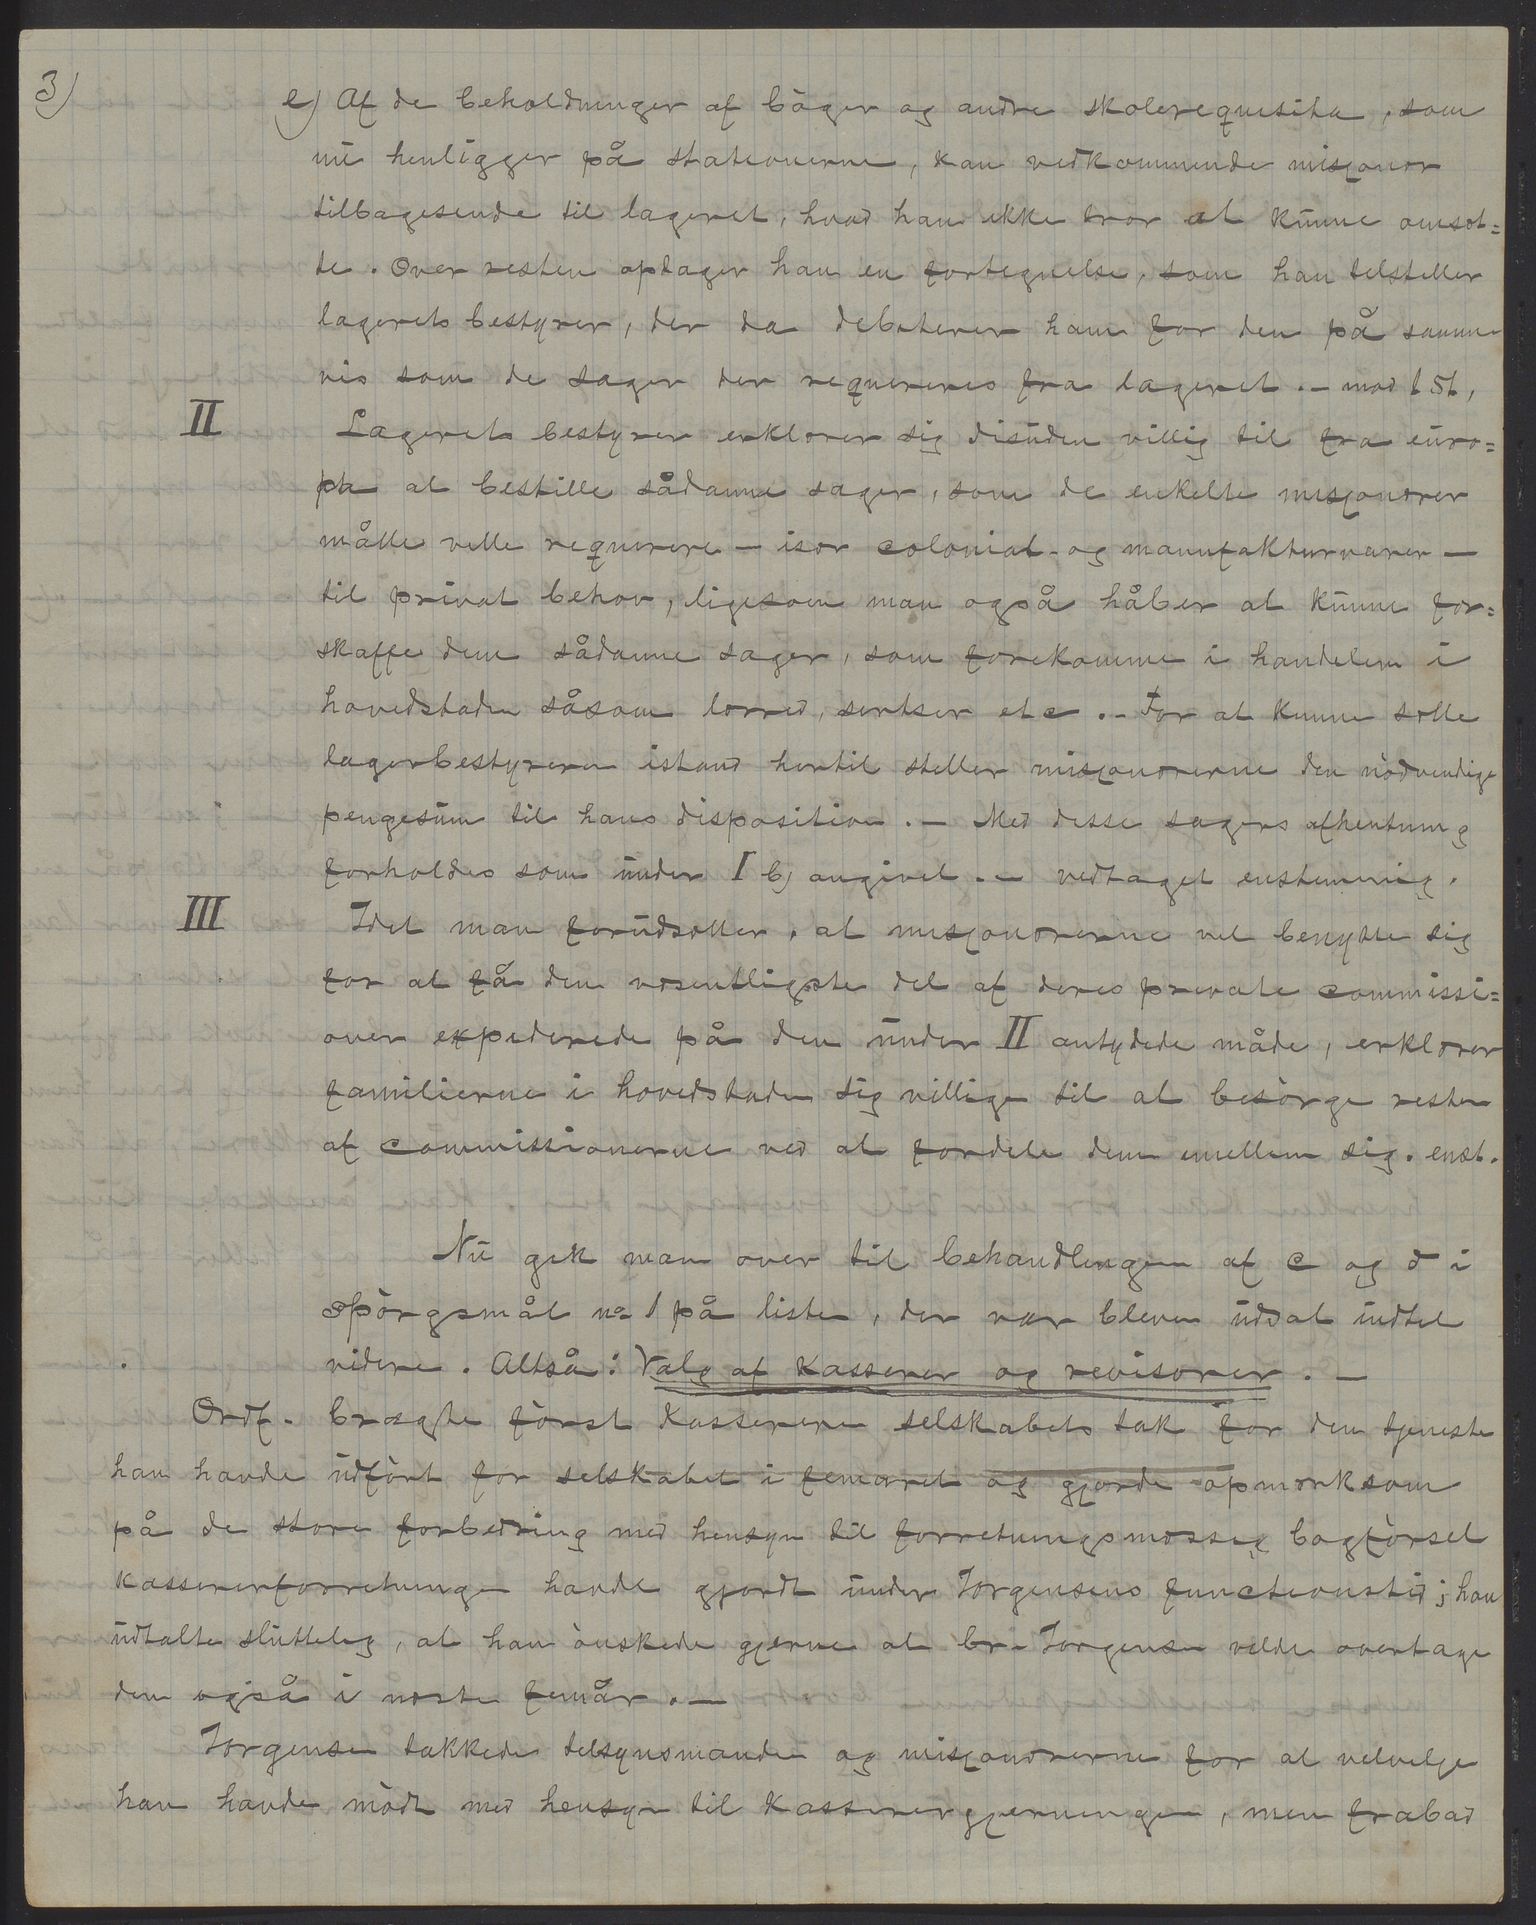 3)
e) Af de beholdninger af bøger og andre skolerequisita, som
nu henligger på stationerne, kan vedkommende misjonær
tilbagesende til lageret, hvad han ikke tror at kunne omsæt=
te. Over resten optager han en fortegnelse, som han tilstiller
lagerets bestyrer, der da debiterer ham for den på samme
vis som de sager der requireres fra lageret. – mod 1 St.
II Lagerets bestyrer erklærer sig disuden villig til fra euro=
pa at bestille sådanne sager, som de enkelte misjonærer
måtte ville requirere – især colonial- og manufakturvarer –
til privat behov, ligesom man også håber at kunne for=
skaffe dem sådanne sager, som forekomme i handelen i
hovedstaden såsom lærred, sirtser etc. – For at kunne sætte
lagerbestyreren istand hertil stiller misjonærerne den nødvendige
pengesum til hans disposition. – Med disse sagers afhentning
forholdes som under I b) angivet. – vedtaget enstemmig.
III Idet man forudsætter, at misjonærerne vil benytte sig
for at få den væsentligste del af deres private commissi=
oner expederede på den under II antydede måde, erklærer
familierne i hovedstaden sig villige til at besørge resten
af commissionerne ved at fordele dem imellem sig. enst.
Nu gik man over til behandlingen af c og d i
spørgsmål no 1 på listen, der var bleven udsat indtil
videre. Altså: Valg af kasserer og revisorer. –
Ordf. bragte først kassereren selskabets tak for den tjeneste
han havde udført for selskabet i femåret og gjorde opmærksom
på de store forbedring med hensyn til forretningsmæssig bogførsel
kassererforretningen havde gjordt under Jørgensens functionstid; han
udtalte sluttelig, at han ønskede gjerne at br. Jørgensen vilde overtage
dem også i næste femår. –
Jørgensen takkede tilsynsmanden og misjonærerne for al velvilje
han havde mødt med hensyn til kasserergjerningen, men frabad